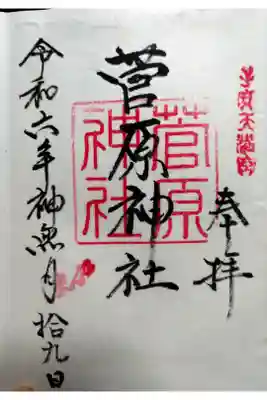 奉拝
菅原神社
菅原神社
令和六年神無月拾九日